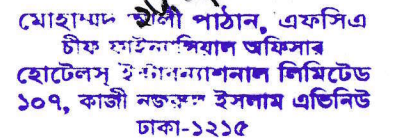 মোহাম্মদ আলী পাঠান, এফসিএ
চীফ ফাইন্যান্সিয়াল অফিসার
হোটেলস্ ইন্টারন্যাশনাল লিমিটেড
১০৭, কাজী নজরুল ইসলাম এভিনিউ
ঢাকা-১২১৫